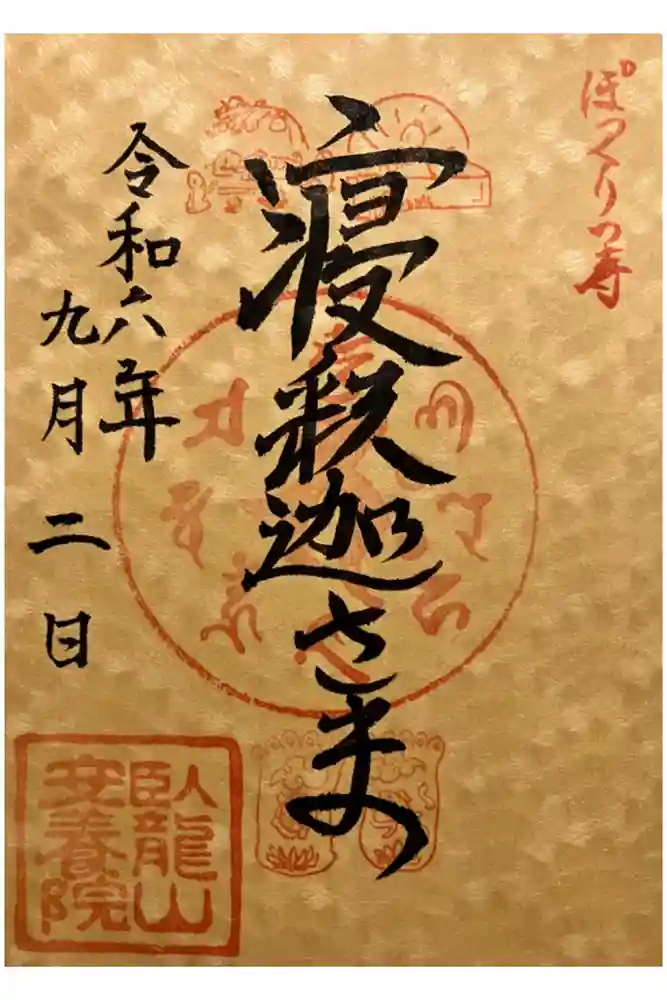 ぽっくりの寺
寝釈迦さま
令和六年
九月二日
臥龍山
安養院